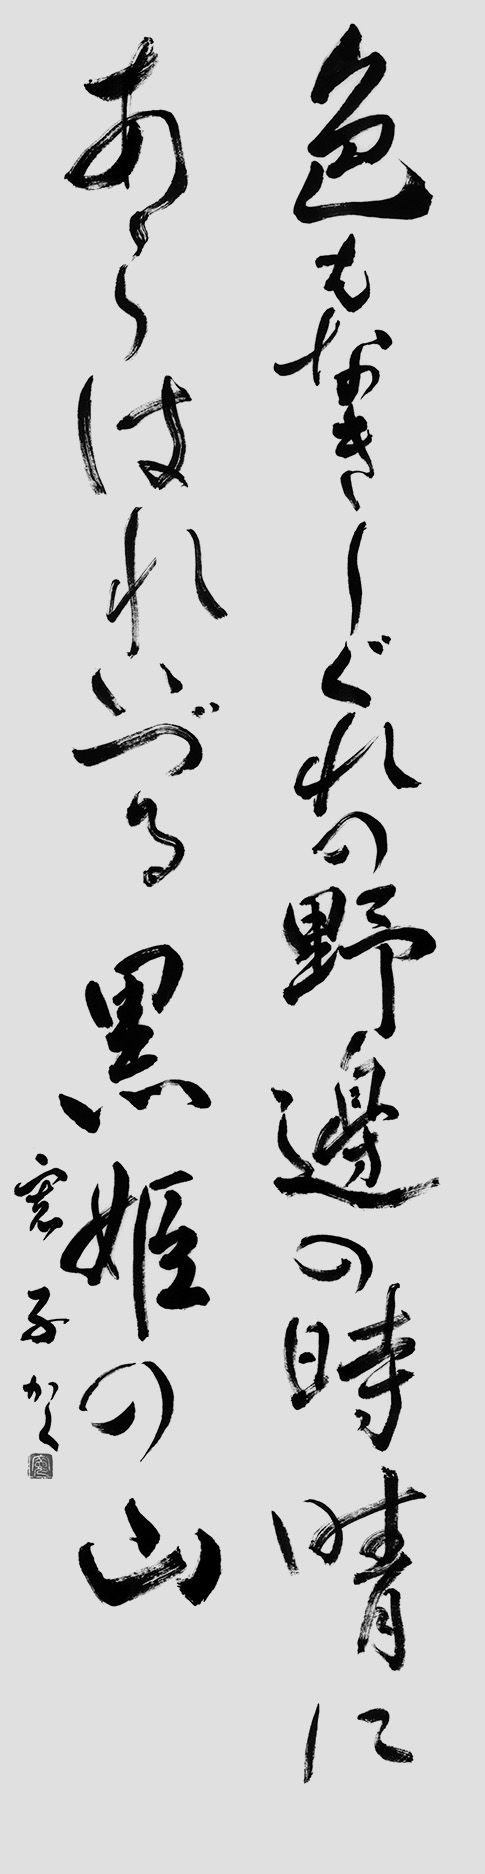 色もなきしぐれの野邊の時晴に
あらはれいづる黒姫の山
寛子かく